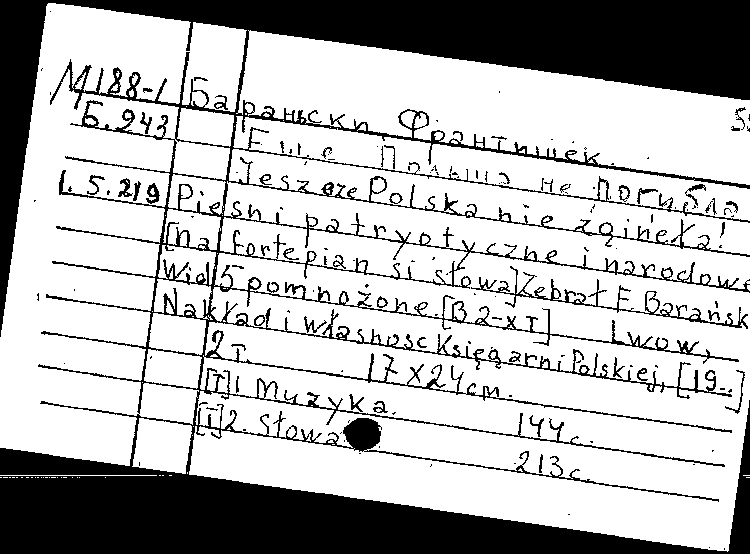 М188-1 Бараньски, Франтишек.
Б.943 Еще Польша не погибла
1.5.219 Jeszcze Polska nie zgineła!
Pieśni patryotyczne i narodowe
[na fortepian si słowa] Zebrał F. Barańsk
Wid 5 pomnożone. [В 2-х т] Lwow,
Nakład i własnosc Księgarni Polskiej, [19..]
2 т. 17x24 см.
[т] 1 Muzyka. 144 с.
[т] 2. Słowa 213 с.